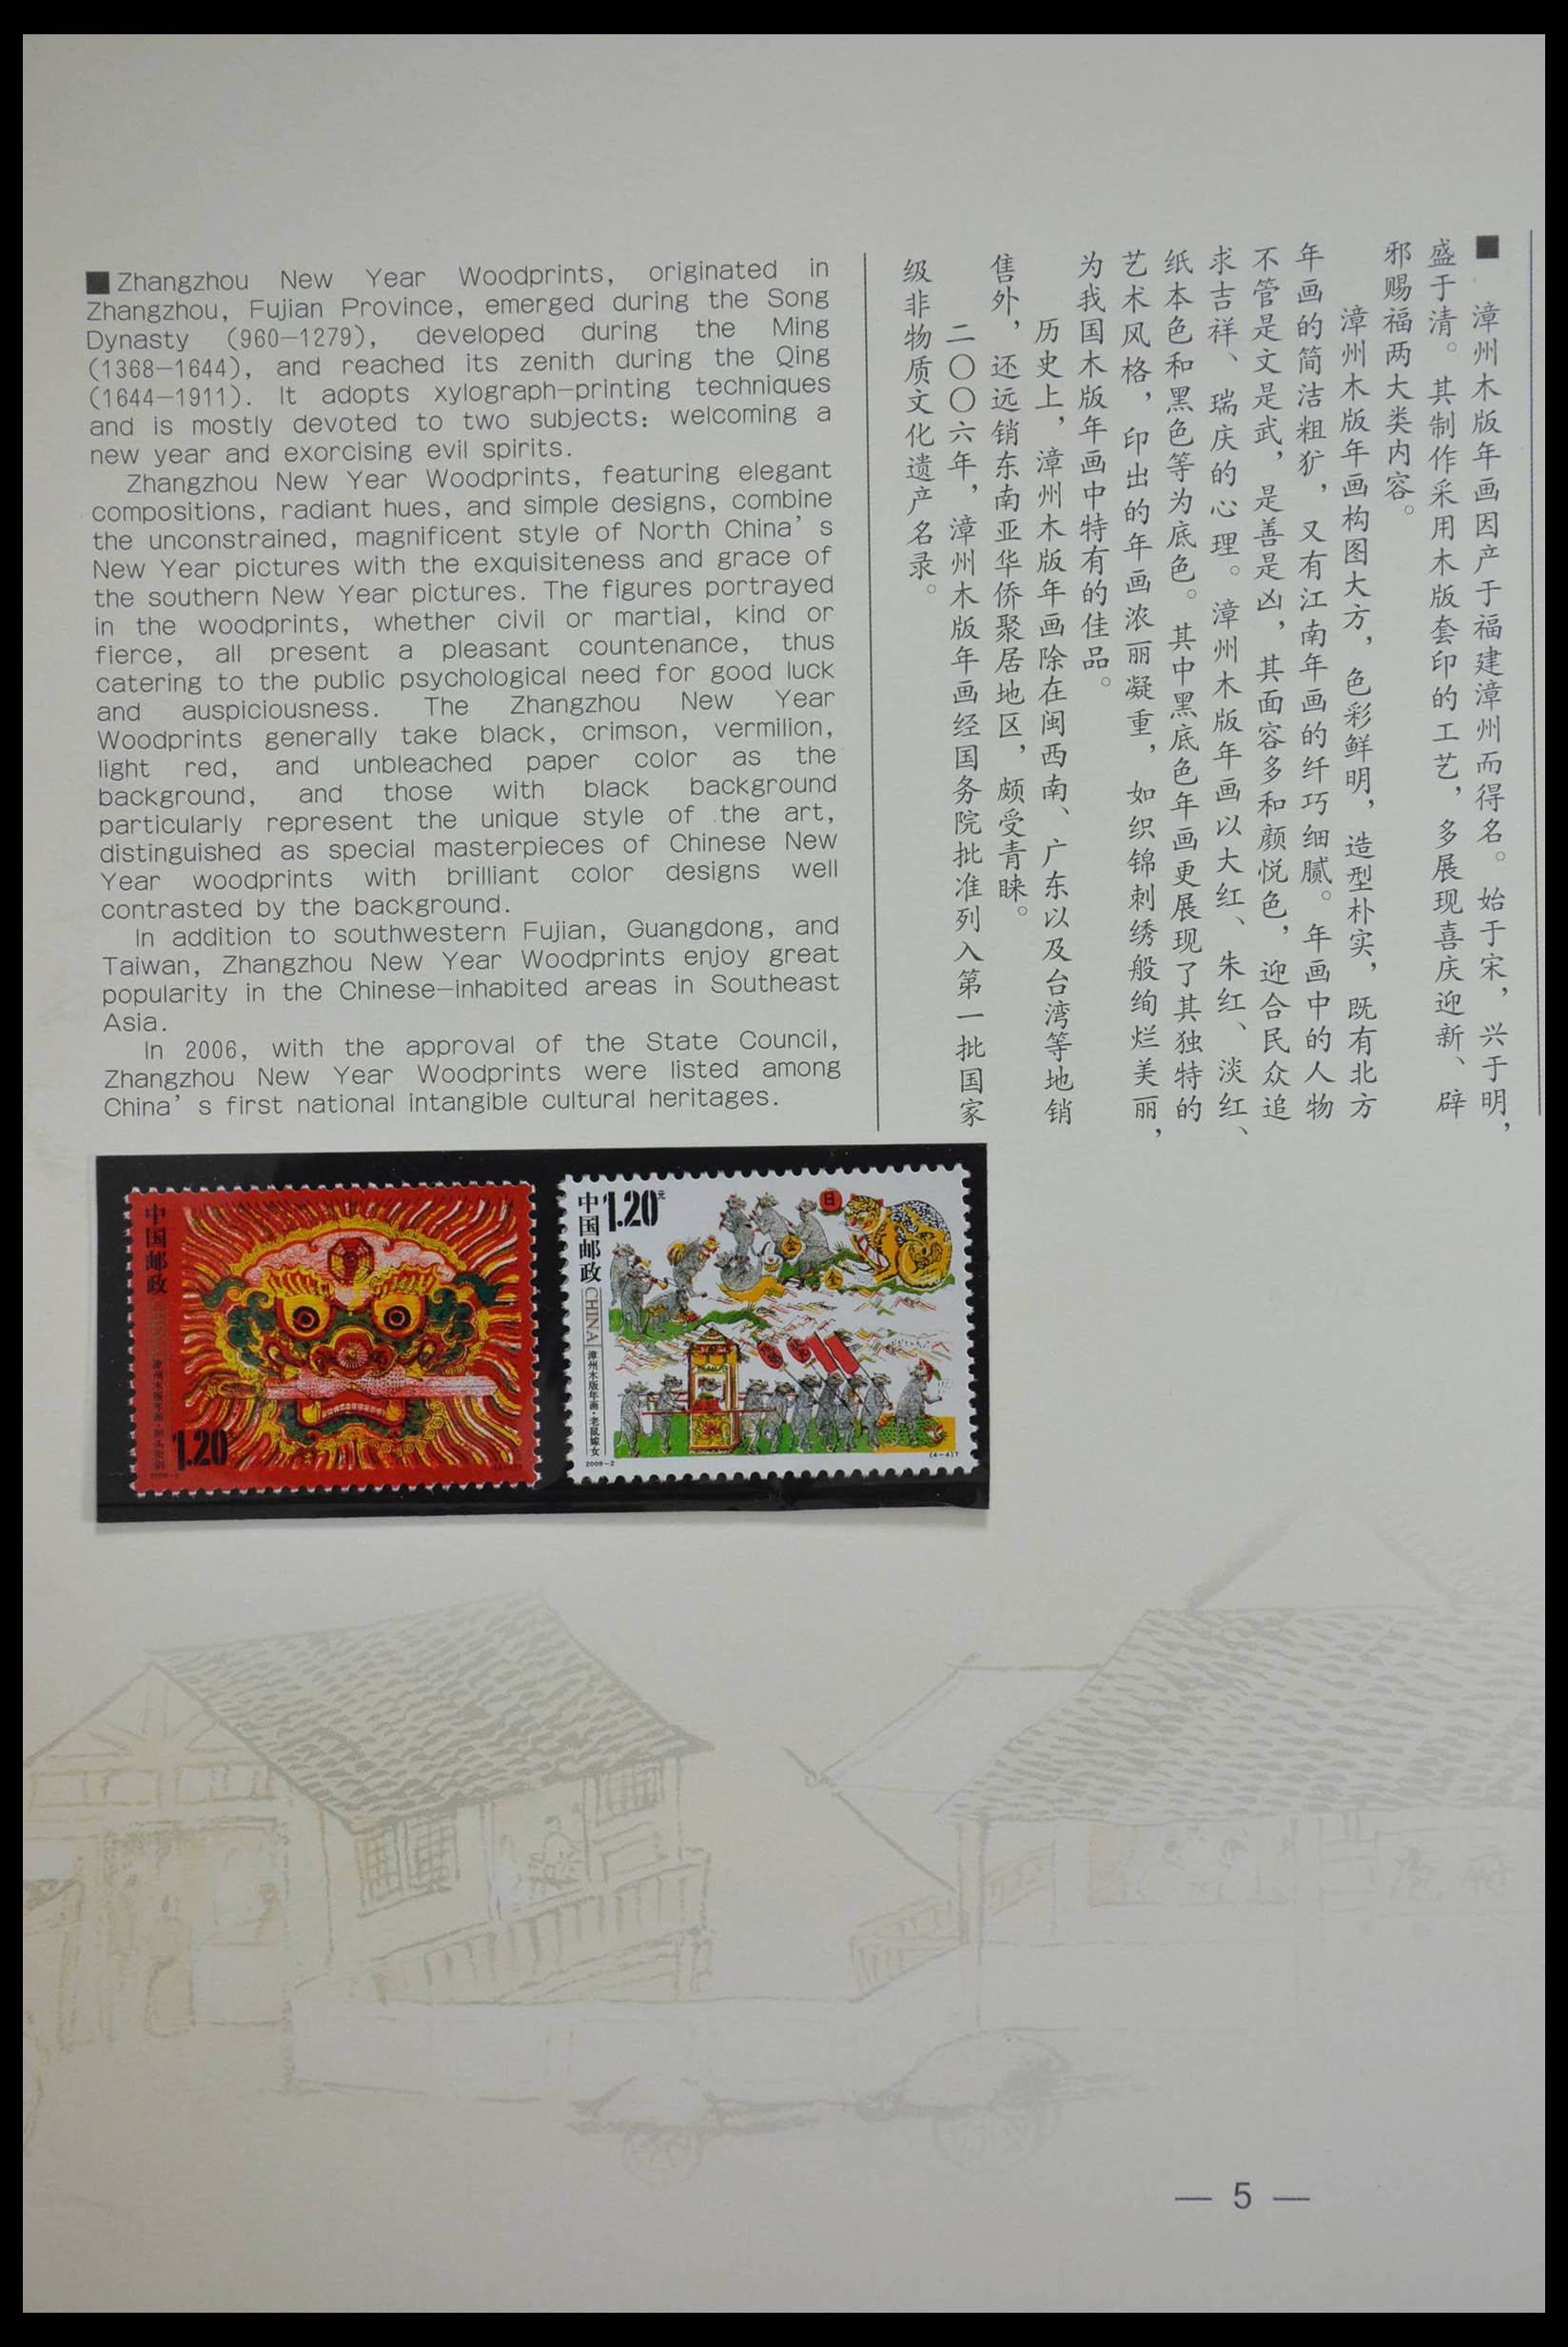 ■ Zhangzhou New Year Woodprints, originated in
Zhangzhou, Fujian Province, emerged during the Song
Dynasty (960—1279), developed during the Ming
(1368—1644), and reached its zenith during the Qing
(1644—1911). It adopts xylograph—printing techniques
and is mostly devoted to two subjects: welcoming a
new year and exorcising evil spirits.
Zhangzhou New Year Woodprints, featuring elegant
compositions, radiant hues, and simple designs, combine
the unconstrained, magnificent style of North China's
New Year pictures with the exquisiteness and grace of
the southern New Year pictures. The figures portrayed
in the woodprints, whether civil or martial, kind or
fierce, all present a pleasant countenance, thus
catering to the public psychological need for good luck
and auspiciousness. The Zhangzhou New Year
Woodprints generally take black, crimson, vermilion,
light red, and unbleached paper color as the
background, and those with black background
particularly represent the unique style of the art,
distinguished as special masterpieces of Chinese New
Year woodprints with brilliant color designs well
contrasted by the background.
In addition to southwestern Fujian, Guangdong, and
Taiwan, Zhangzhou New Year Woodprints enjoy great
popularity in the Chinese—inhabited areas in Southeast
Asia.
In 2006, with the approval of the State Council,
Zhangzhou New Year Woodprints were listed among
China's first national intangible cultural heritages.
■ 漳州木版年画因产于福建漳州而得名。始于宋，兴于明，
盛于清。其制作采用木版套印的工艺，多展现喜庆迎新、辟
邪赐福两大类内容。
漳州木版年画构图大方，色彩鲜明，造型朴实，既有北方
年画的简洁粗犷，又有江南年画的纤巧细腻。年画中的人物
不管是文是武，是善是凶，其面容多和颜悦色，迎合民众追
求吉祥、瑞庆的心理。漳州木版年画以大红、朱红、淡红、
纸本色和黑色等为底色。其中黑底色年画更展现了其独特的
艺术风格，印出的年画浓丽凝重，如织锦刺绣般绚烂美丽，
为我国木版年画中特有的佳品。
历史上，漳州木版年画除在闽西南、广东以及台湾等地销
售外，还远销东南亚华侨聚居地区，颇受青睐。
二〇〇六年，漳州木版年画经国务院批准列入第一批国家
级非物质文化遗产名录。
中国邮政
CHINA
1.20
2009-2
中国邮政
CHINA
1.20元
漳州木版年画·老鼠嫁女
2009-2
(4-4)T
日
金
金
— 5 —